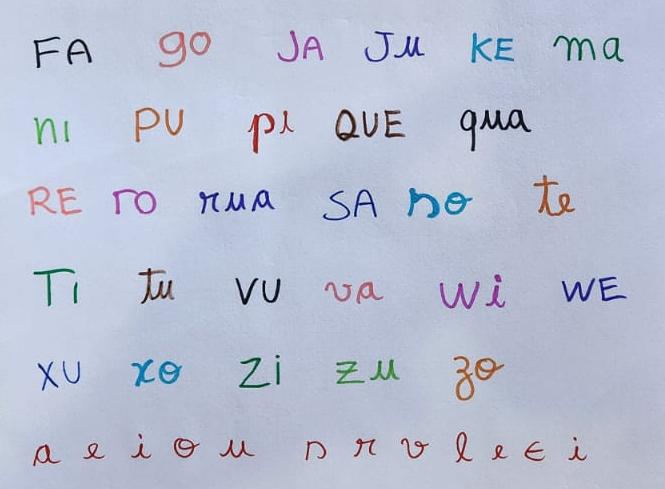 FA go JA Ju KE ma
ni PU pi QUE qua
RE ro rua SA so te
Ti tu VU va Wi WE
XU xo Zi zu zo
a e i o u s r v l e e i